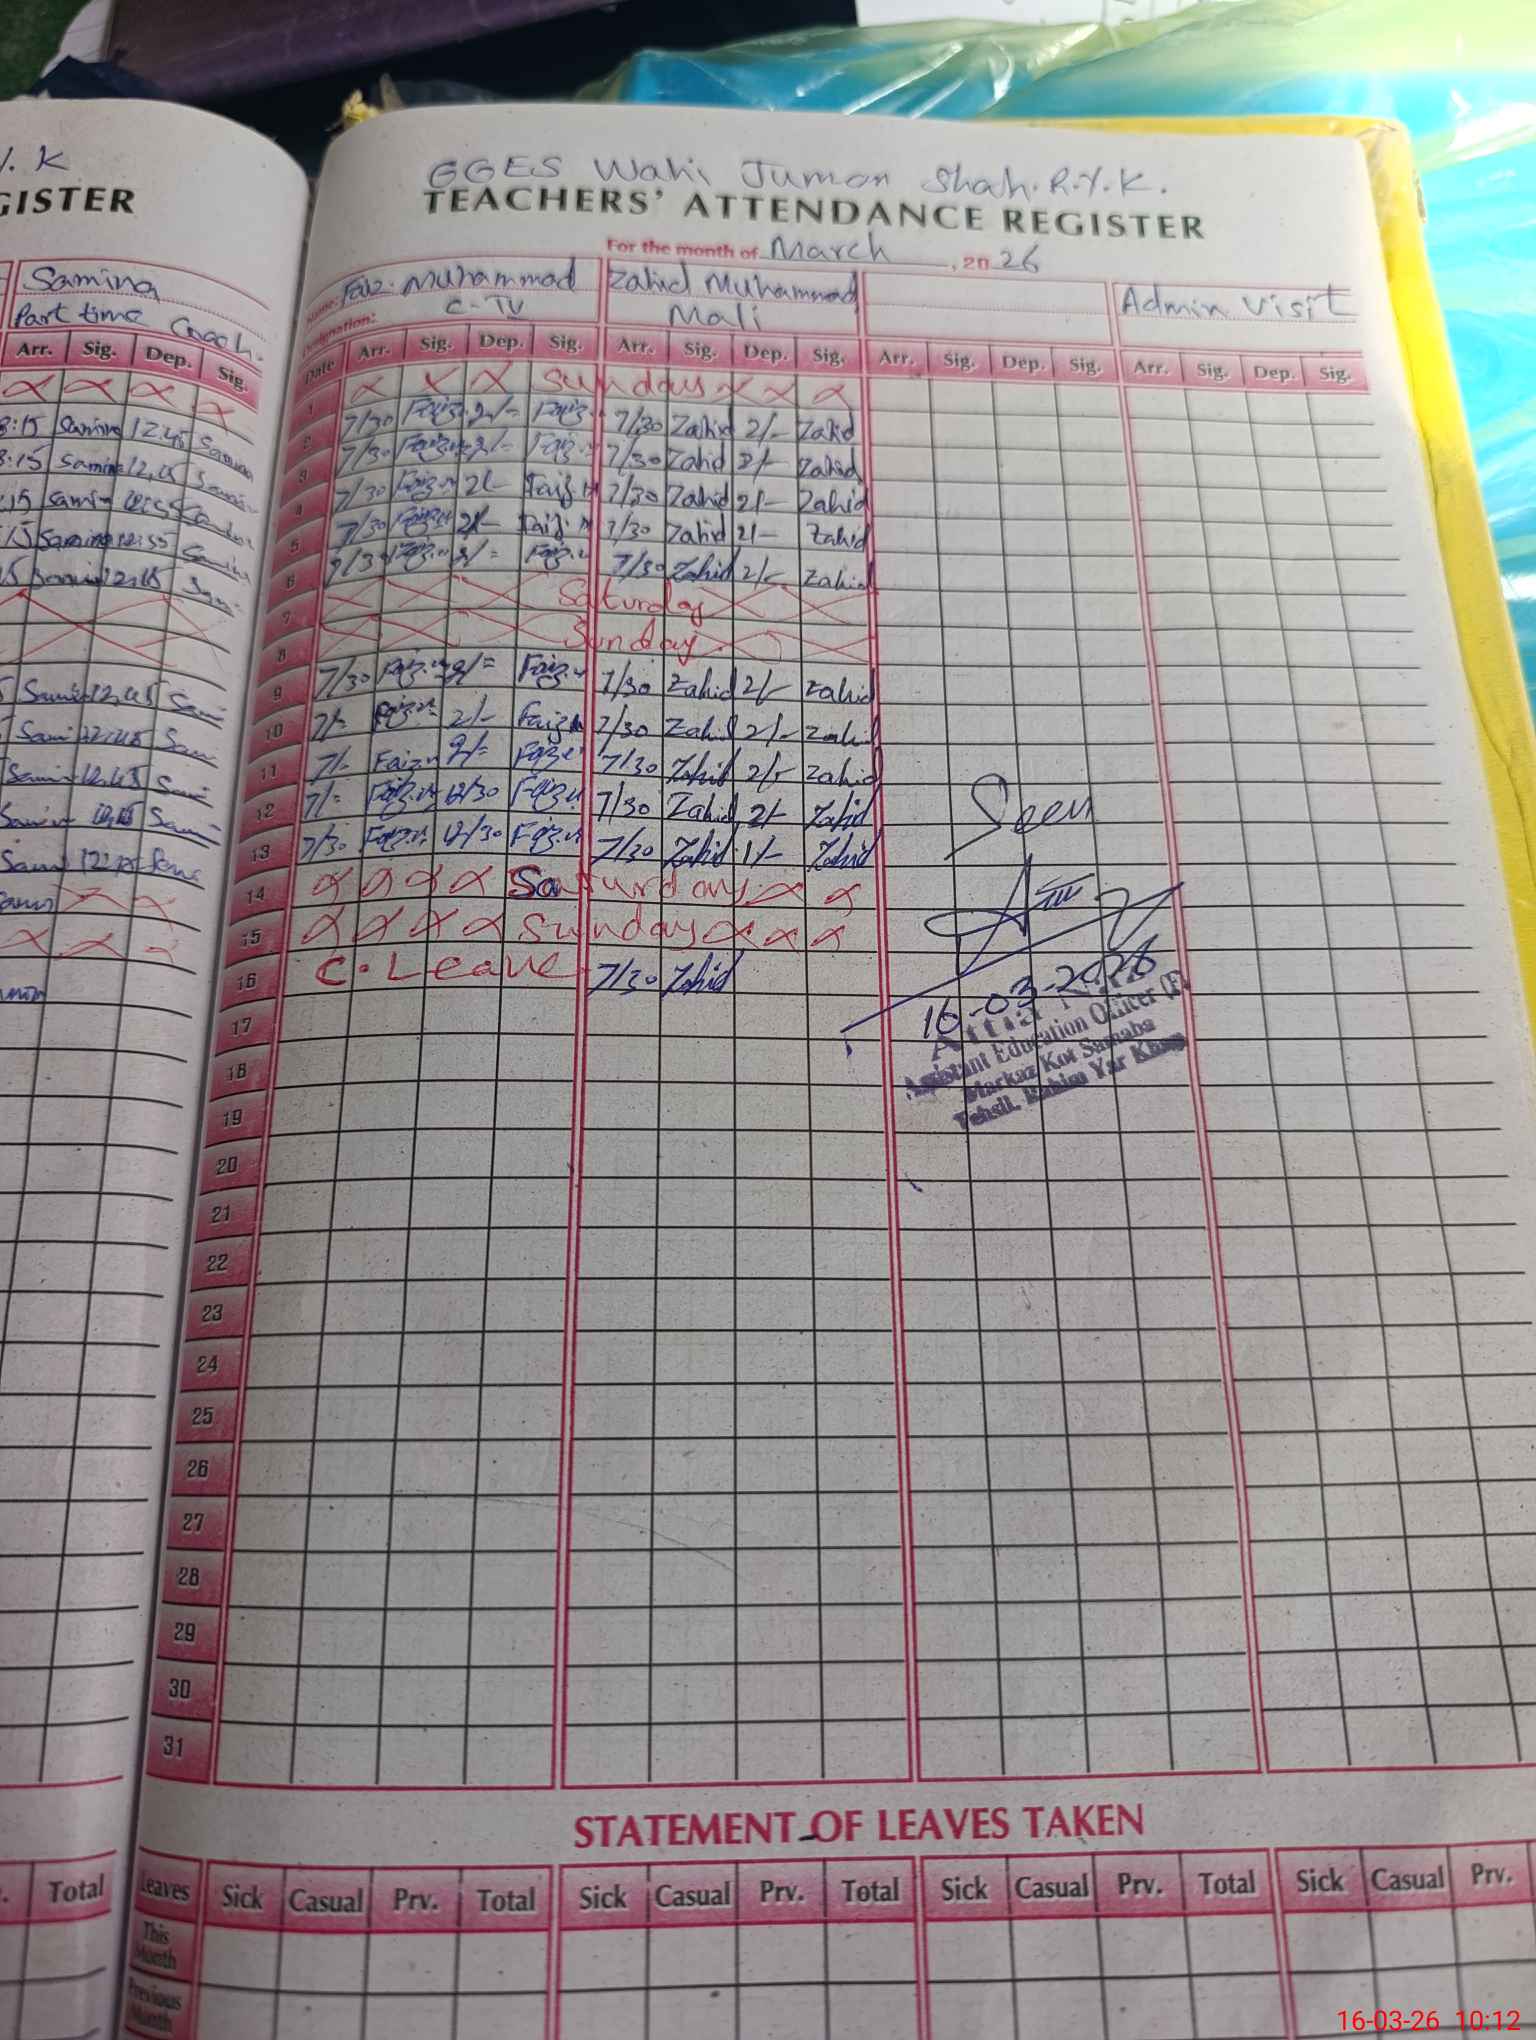 Y. K
GISTER
Samina
Part time Coach.
Arr. Sig. Dep. Sig.
GGES Wahi Juman Shah. R.Y.K.
TEACHERS' ATTENDANCE REGISTER
For the month of March, 2026
Name: Faiz Muhammad Zahid Muhammad Admin Visit
Designation: C-IV Mali
Date Arr. Sig. Dep. Sig. Arr. Sig. Dep. Sig. Arr. Sig. Dep. Sig. Arr. Sig. Dep. Sig.
1 Sunday
2 7/30 Faiz.m 2/- Faiz.m 7/30 Zahid 2/- Zahid
3 7/30 Faiz.m 2/- Faiz.m 7/30 Zahid 2/- Zahid
4 7/30 Faiz.m 2/- Faiz.m 7/30 Zahid 2/- Zahid
5 7/30 Faiz.m 2/- Faiz.m 7/30 Zahid 2/- Zahid
6 7/30 Faiz.m 2/= Faiz.m 7/30 Zahid 2/- Zahid
7 Saturday
8 Sunday
9 7/30 Faiz.m 2/= Faiz.m 7/30 Zahid 2/- Zahid
10 7/- Faiz.m 2/- Faiz.m 7/30 Zahid 2/- Zahid
11 7/- Faiz.m 2/= Faiz.m 7/30 Zahid 2/- Zahid
12 7/= Faiz.m 12/30 Faiz.m 7/30 Zahid 2/- Zahid
13 7/30 Faiz.m 12/30 Faiz.m 7/30 Zahid 1/- Zahid
14 Saturday
15 Sunday
16 C. Leave 7/30 Zahid
Seen
16-03-2026
Assistant Education Officer (F)
Markaz Kot Samaba
Tehsil. Rahim Yar Khan
17
18
19
20
21
22
23
24
25
26
27
28
29
30
31
STATEMENT OF LEAVES TAKEN
Total
Leaves Sick Casual Prv. Total Sick Casual Prv. Total Sick Casual Prv. Total Sick Casual Prv.
This Month
Previous Month
16-03-26 10:12